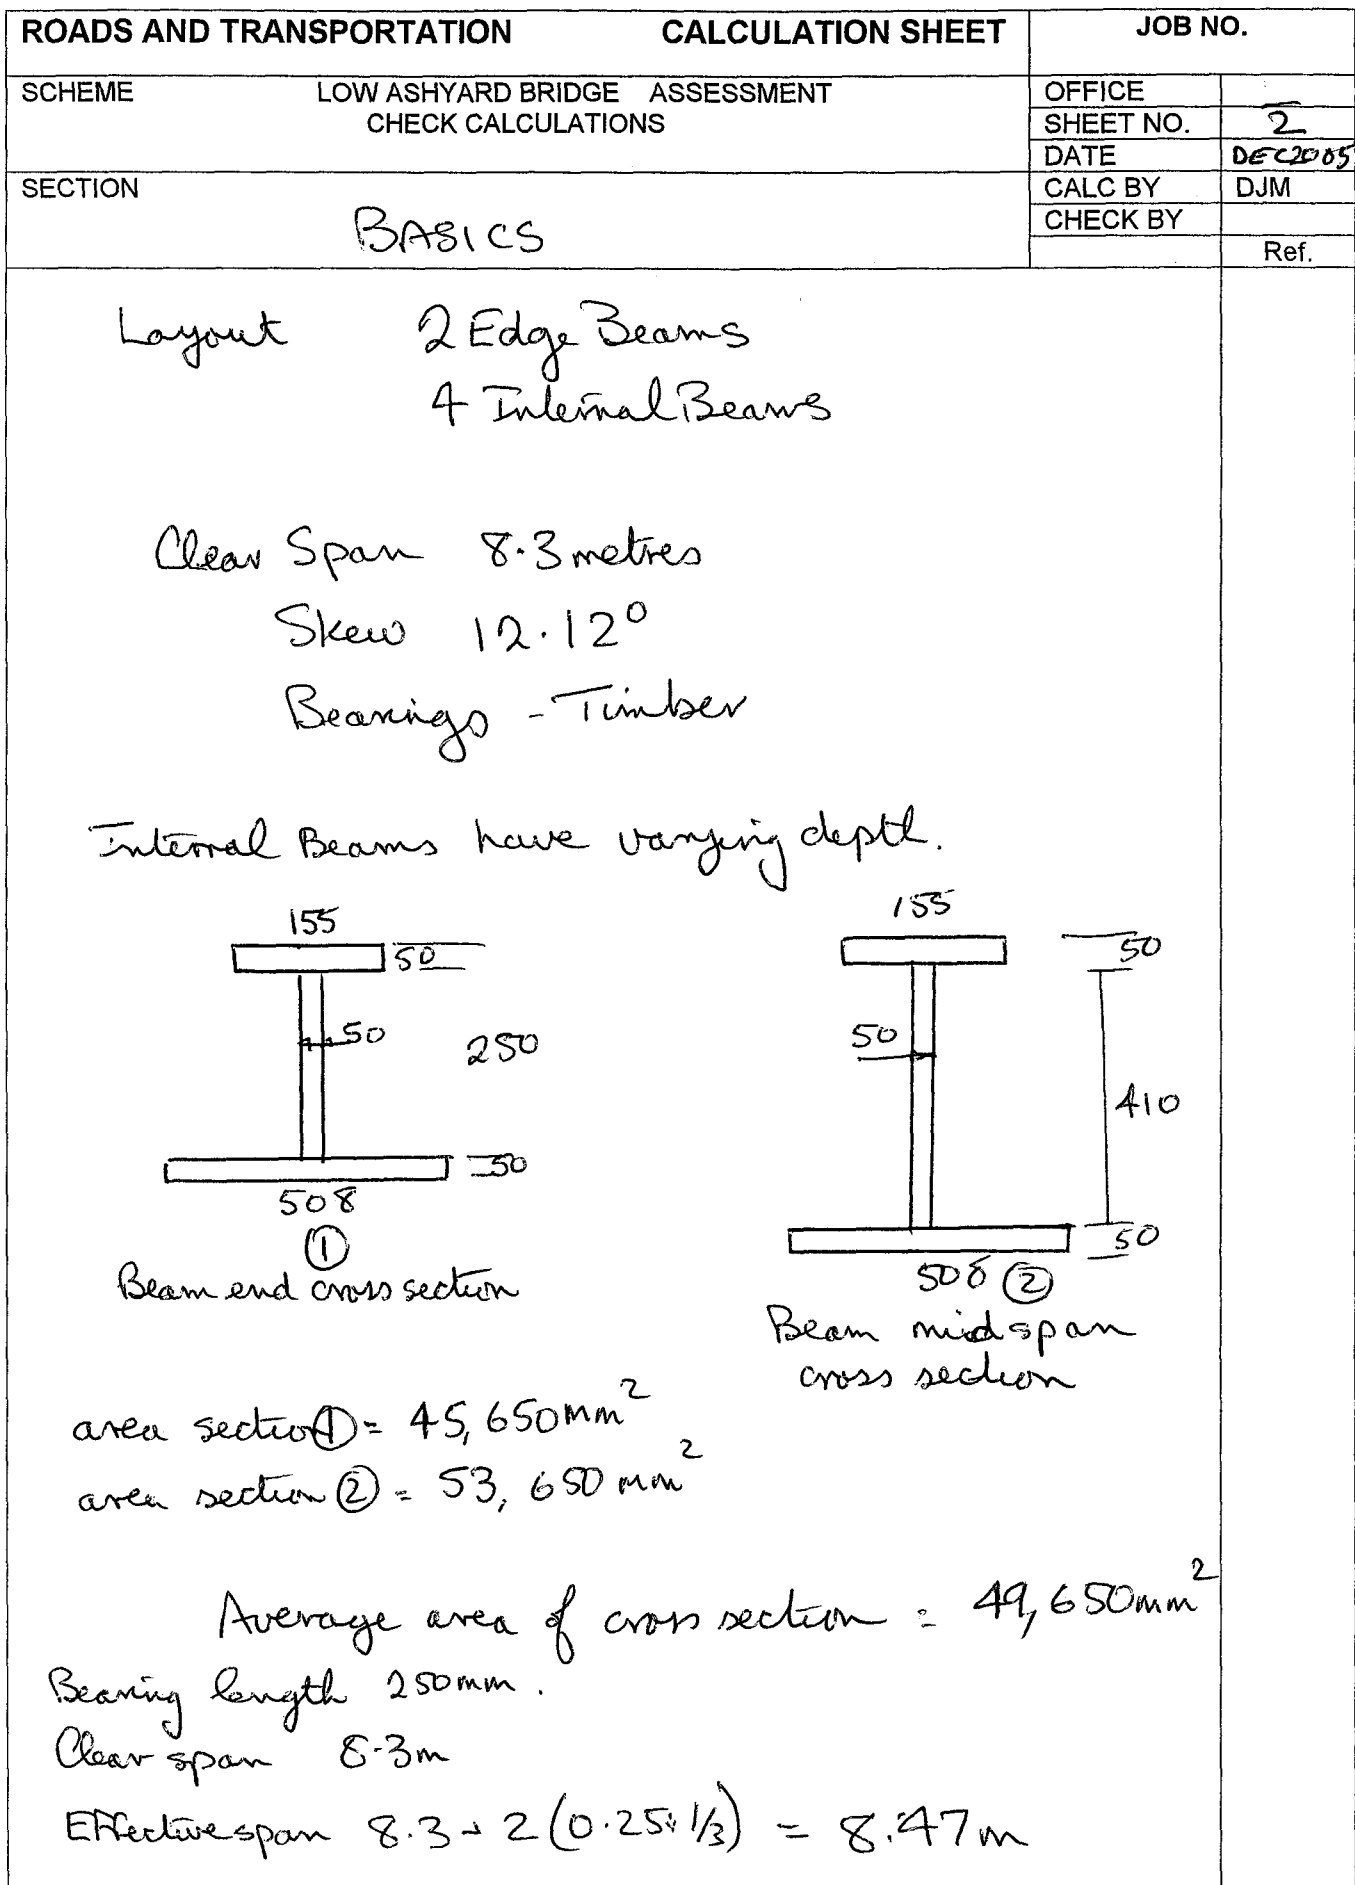 ROADS AND TRANSPORTATION CALCULATION SHEET JOB NO.
SCHEME LOW ASHYARD BRIDGE ASSESSMENT
CHECK CALCULATIONS
OFFICE
SHEET NO. 2
DATE DEC2005
SECTION
BASICS
CALC BY DJM
CHECK BY
Ref.
Layout 2 Edge Beams
4 Internal Beams
Clear Span 8.3 metres
Skew 12.12°
Bearings - Timber
Internal Beams have varying depth.
155
50
50
250
50
508
①
Beam end cross section
155
50
50
410
50
508 ②
Beam midspan
cross section
area section ① = 45,650mm²
area section ② = 53,650mm²
Average area of cross section = 49,650mm²
Bearing length 250mm.
Clear span 8.3m
Effective span 8.3 + 2(0.25 × 1/3) = 8.47m